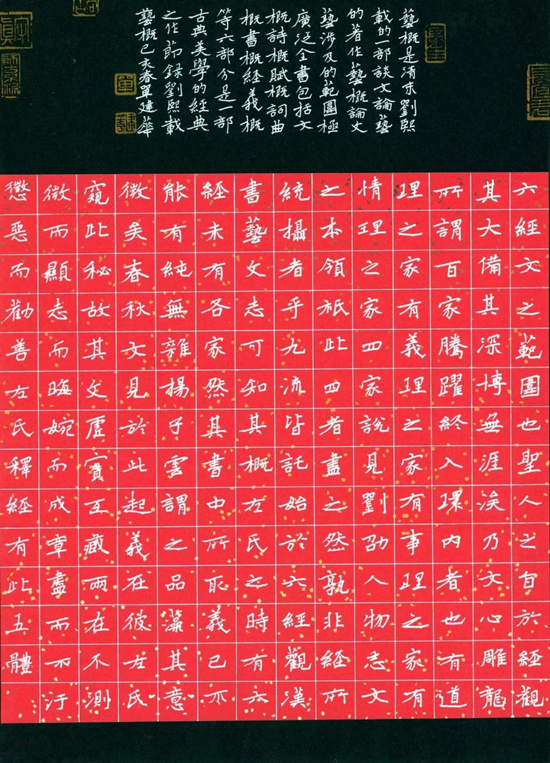 藝概是清末劉熙
載的一部談文論藝
的著作藝概論文
藝涉及的範圍極
廣泛全書包括文
概詩概賦概詞曲
概書概經義概
等六部分是一部
古典美學的經典
之作節錄劉熙載
藝概己亥春單建華
六經文之範圍也聖人之旨於經觀
其大備其深博無涯涘乃文心雕龍
所謂百家騰躍終入環內者也有道
理之家有義理之家有事理之家有
情理之家四家說見劉劭人物志文
之本領祇此四者盡之然孰非經所
統攝者乎九流皆託始於六經觀漢
書藝文志可知其概左氏之時有六
經未有各家然其書中所取義已不
能有純無雜揚子雲謂之品藻其意
微矣春秋文見於此起義在彼左氏
窺此秘故其文虛實互藏兩在不測
微而顯志而晦婉而成章盡而不汙
懲惡而勸善左氏釋經有此五體